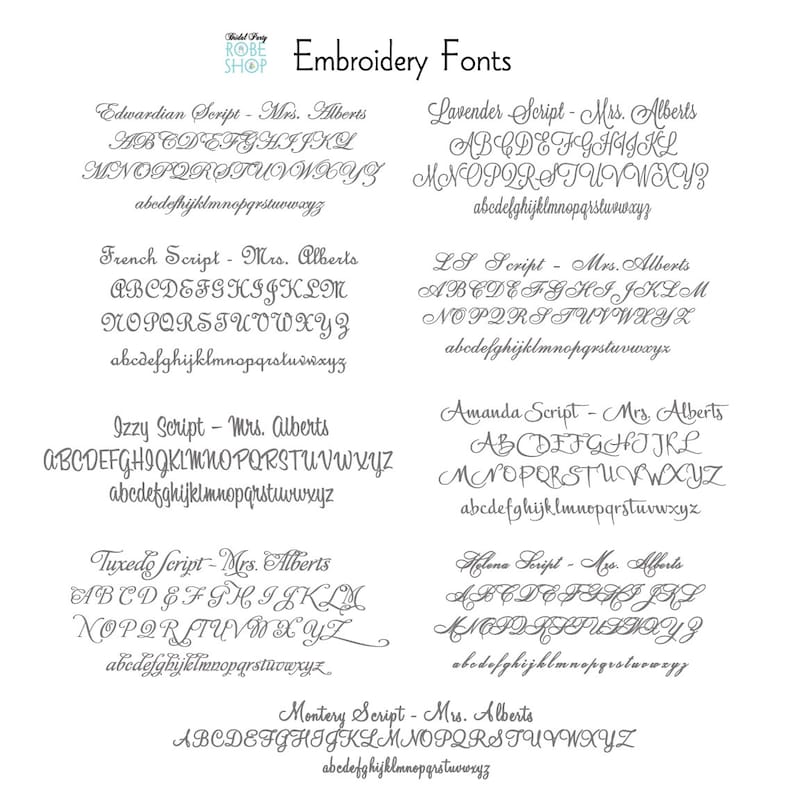 Bridal Party
ROBE
SHOP
Embroidery Fonts
Edwardian Script - Mrs. Alberts
ABCDEFGHIJKL
MNOPQRSTUVWXYZ
abcdefhijklmnopqrstuvwxyz
Lavender Script - Mrs. Alberts
ABCDEFGHIJKL
MNOPQRSTUVWXYZ
abcdefghijklmnopqrstuvwxyz
French Script - Mrs. Alberts
ABCDEFGHIJKLM
NOPQRSTUVWXYZ
abcdefghijklmnopqrstuvwxyz
LS Script - Mrs. Alberts
ABCDEFGHIJKLM
NOPQRSTUVWXYZ
abcdefghijklmnopqrstuvwxyz
Izzy Script - Mrs. Alberts
ABCDEFGHIJKLMNOPQRSTUVWXYZ
abcdefghijklmnopqrstuvwxyz
Amanda Script - Mrs. Alberts
ABCDEFGHIJKL
MNOPQRSTUVWXYZ
abcdefghijklmnopqrstuvwxyz
Tuxedo Script - Mrs. Alberts
ABCDEFGHIJKLM
NOPQRSTUVWXYZ
abcdefghijklmnopqrstuvwxyz
Helena Script - Mrs. Alberts
ABCDEFGHIJKL
MNOPQRSTUVWXYZ
abcdefghijklmnopqrstuvwxyz
Montery Script - Mrs. Alberts
ABCDEFGHIJKLMNOPQRSTUVWXYZ
abcdefghijklmnopqrstuvwxyz